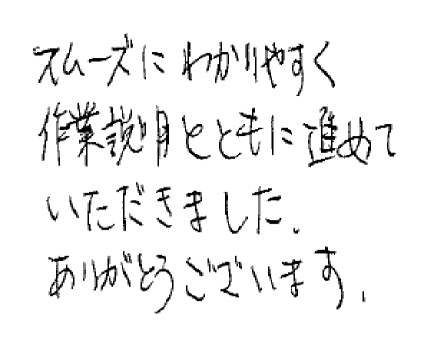 スムーズにわかりやすく
作業説明とともに進めて
いただきました.
ありがとうございます.